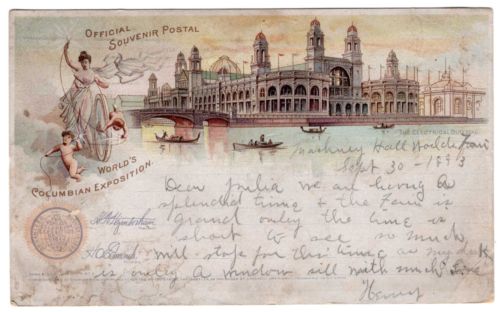 OFFICIAL
SOUVENIR POSTAL
WORLD'S
COLUMBIAN EXPOSITION.
THE ELECTRICAL BUILDING
Hall
Sept 30 - 1893
Dear Julia we are having a
splendid time & the Fair is
grand only the time is
short to see so much
will stop for this time as my desk
is only a window sill with much love
Henry